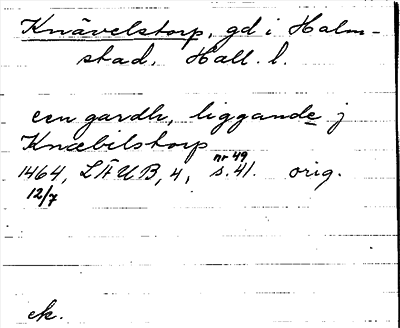 Knävelstorp, gd i Halm-
stad, Hall. l.
een gardh, liggande j
Knæbilstorp
1464, LÄUB, 4, nr 49 s. 41. orig.
12/7
ek.